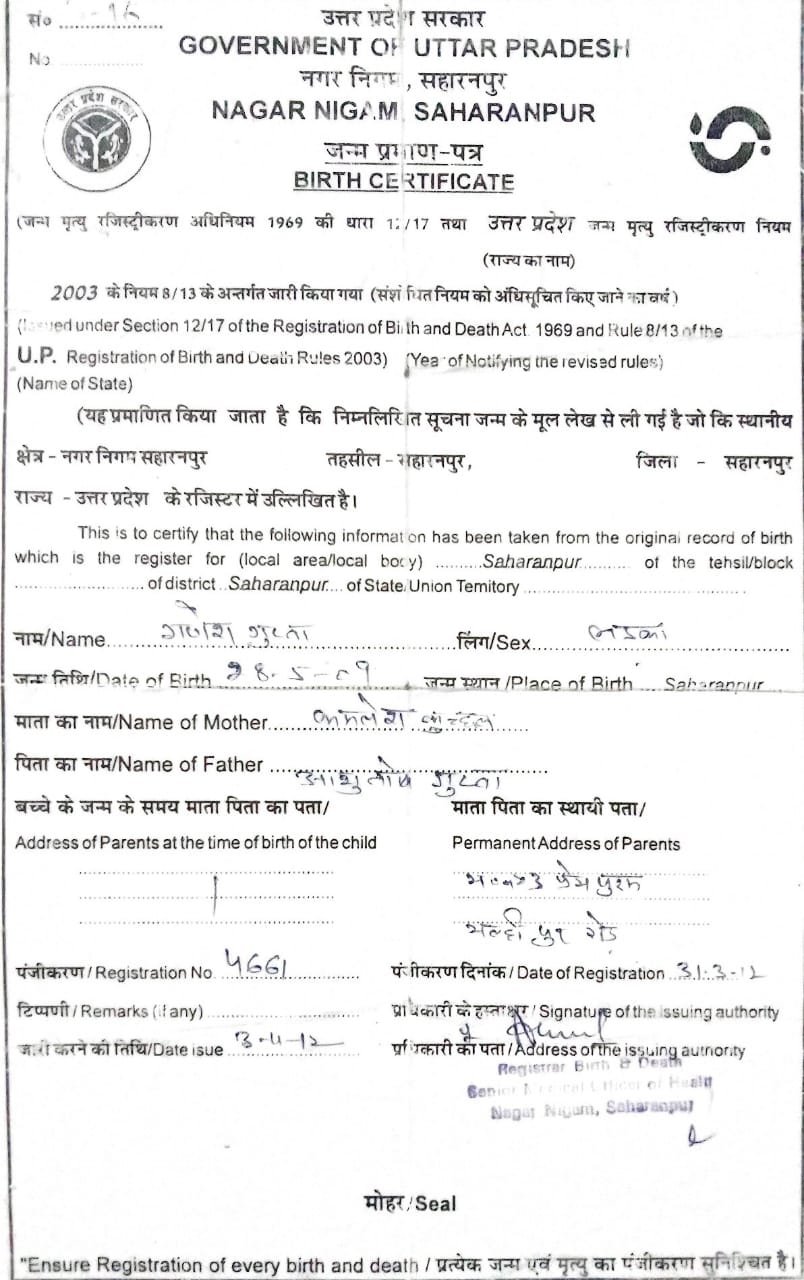 सं०
उत्तर प्रदेश सरकार
GOVERNMENT OF UTTAR PRADESH
No
नगर निगम, सहारनपुर
NAGAR NIGAM, SAHARANPUR
उत्तर प्रदेश सरकार
जन्म प्रमाण-पत्र
BIRTH CERTIFICATE
(जन्म मृत्यु रजिस्ट्रीकरण अधिनियम 1969 की धारा 12/17 तथा उत्तर प्रदेश जन्म मृत्यु रजिस्ट्रीकरण नियम
(राज्य का नाम)
2003 के नियम 8/13 के अन्तर्गत जारी किया गया (संशोधित नियम को अधिसूचित किए जाने का वर्ष)
(Issued under Section 12/17 of the Registration of Birth and Death Act. 1969 and Rule 8/13 of the
U.P. Registration of Birth and Death Rules 2003) (Year of Notifying the revised rules)
(Name of State)
(यह प्रमाणित किया जाता है कि निम्नलिखित सूचना जन्म के मूल लेख से ली गई है जो कि स्थानीय
क्षेत्र - नगर निगम सहारनपुर तहसील - सहारनपुर, जिला - सहारनपुर
राज्य - उत्तर प्रदेश के रजिस्टर में उल्लिखित है।
This is to certify that the following information has been taken from the original record of birth
which is the register for (local area/local body) ..........Saharanpur........... of the tehsil/block
........................... of district ..Saharanpur.... of State/Union Temitory ................................................
नाम/Name.... गणेश गुप्ता ....लिंग/Sex.... लडका
जन्म तिथि/Date of Birth 28.5-09 जन्म स्थान /Place of Birth .... Saharanpur
माता का नाम/Name of Mother.... कमलेश
पिता का नाम/Name of Father .... आशुतोष गुप्ता
बच्चे के जन्म के समय माता पिता का पता/ माता पिता का स्थायी पता/
Address of Parents at the time of birth of the child Permanent Address of Parents
पुरम
रोड
पंजीकरण / Registration No. 4661 पंजीकरण दिनांक / Date of Registration ..31.3-12
टिप्पणी / Remarks (if any) .......................... प्राधिकारी के हस्ताक्षर / Signature of the issuing authority
जारी करने की तिथि/Date isue 3-4-12 प्राधिकारी का पता / Address of the issuing autnority
Registrar Birth & Death
Senior Medical Officer of Health
Nagar Nigam, Saharanpur
मोहर/Seal
"Ensure Registration of every birth and death / प्रत्येक जन्म एवं मृत्यु का पंजीकरण सुनिश्चित है।